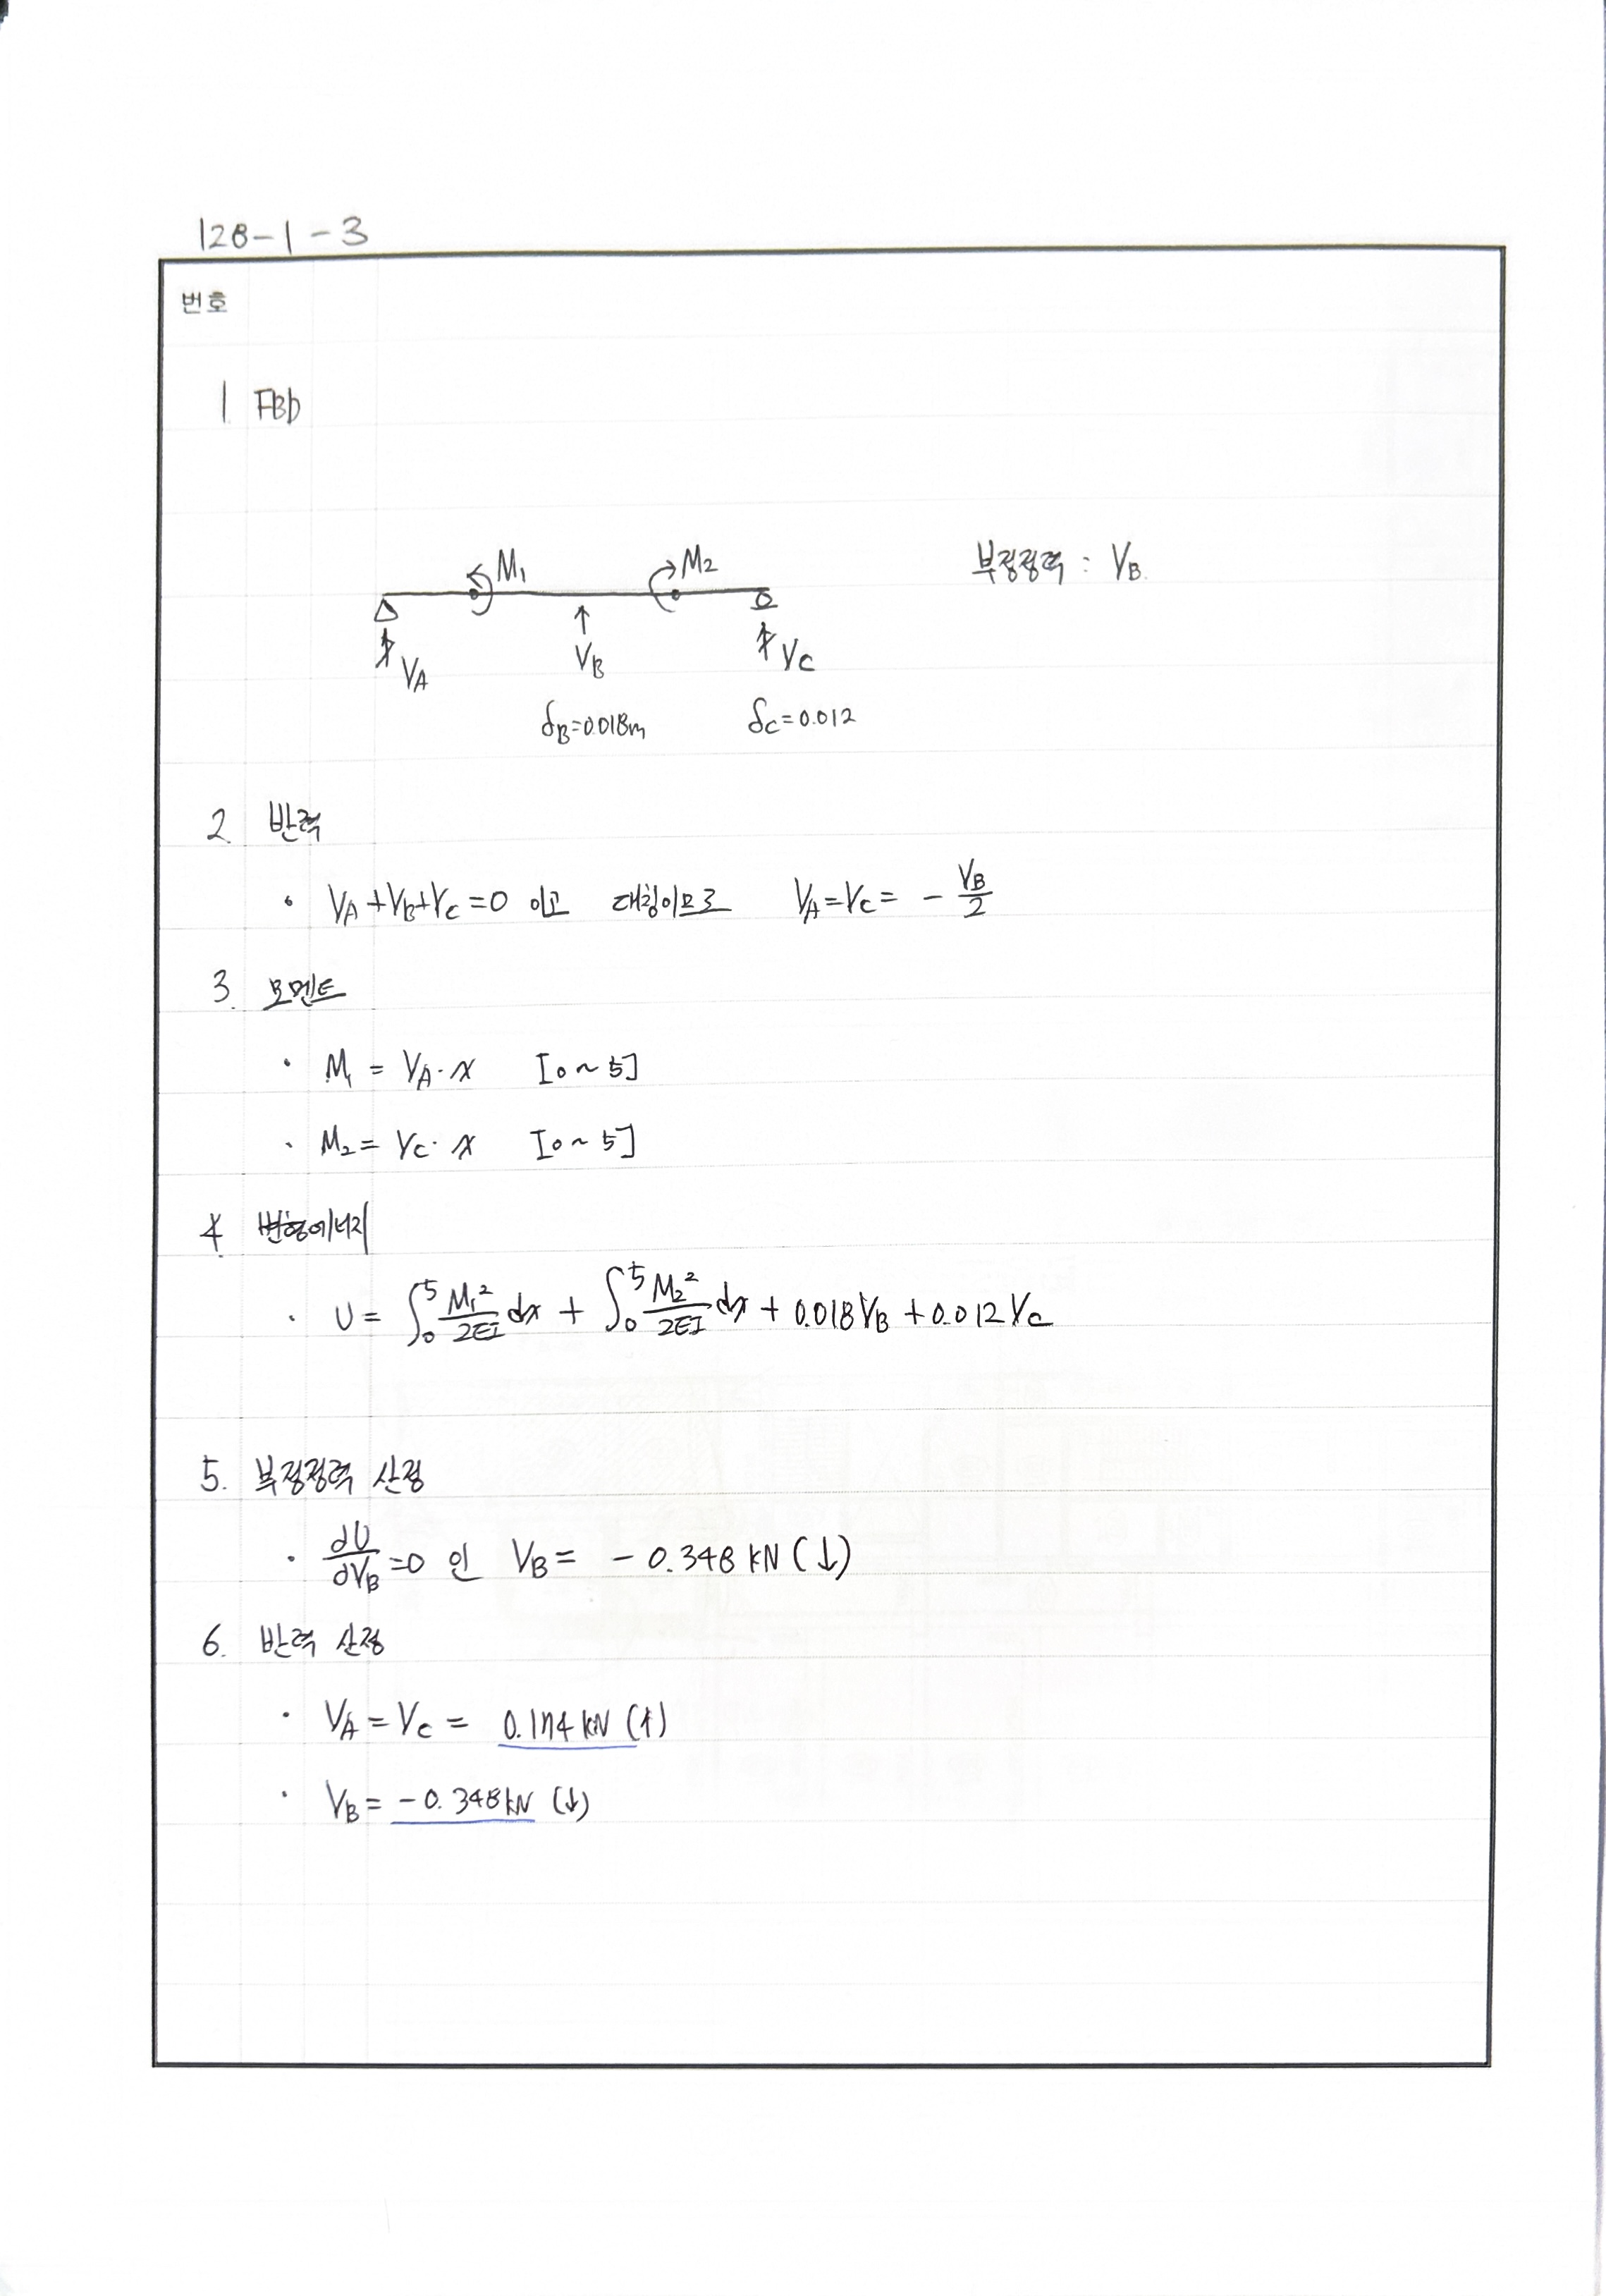 128-1-3
번호
1 FBD
M₁ M₂ 부정정력 : V_B.
V_A V_B V_C
δ_B=0.018m δ_C=0.012
2. 반력
• V_A+V_B+V_C=0 이고 대칭이므로 V_A=V_C= - V_B/2
3. 모멘트
• M₁ = V_A·x [0~5]
• M₂= V_C·x [0~5]
4. 변형에너지
• U= ∫₀⁵ M₁²/2EI dx + ∫₀⁵ M₂²/2EI dx + 0.018V_B +0.012V_C
5. 부정정력 산정
• ∂U/∂V_B=0 인 V_B= - 0.348 kN (↓)
6. 반력 산정
• V_A=V_C= 0.174 kN (↑)
• V_B= -0.348kN (↓)